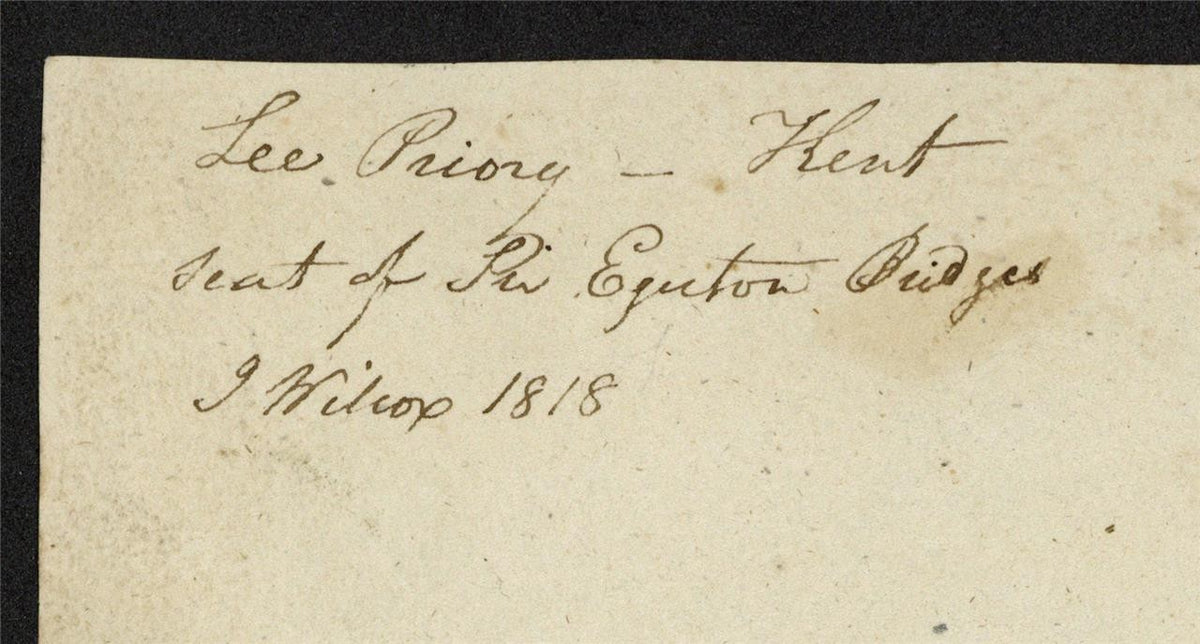 Lee Priory – Kent
seat of Sir Egerton Bridges
J Wilcox 1818